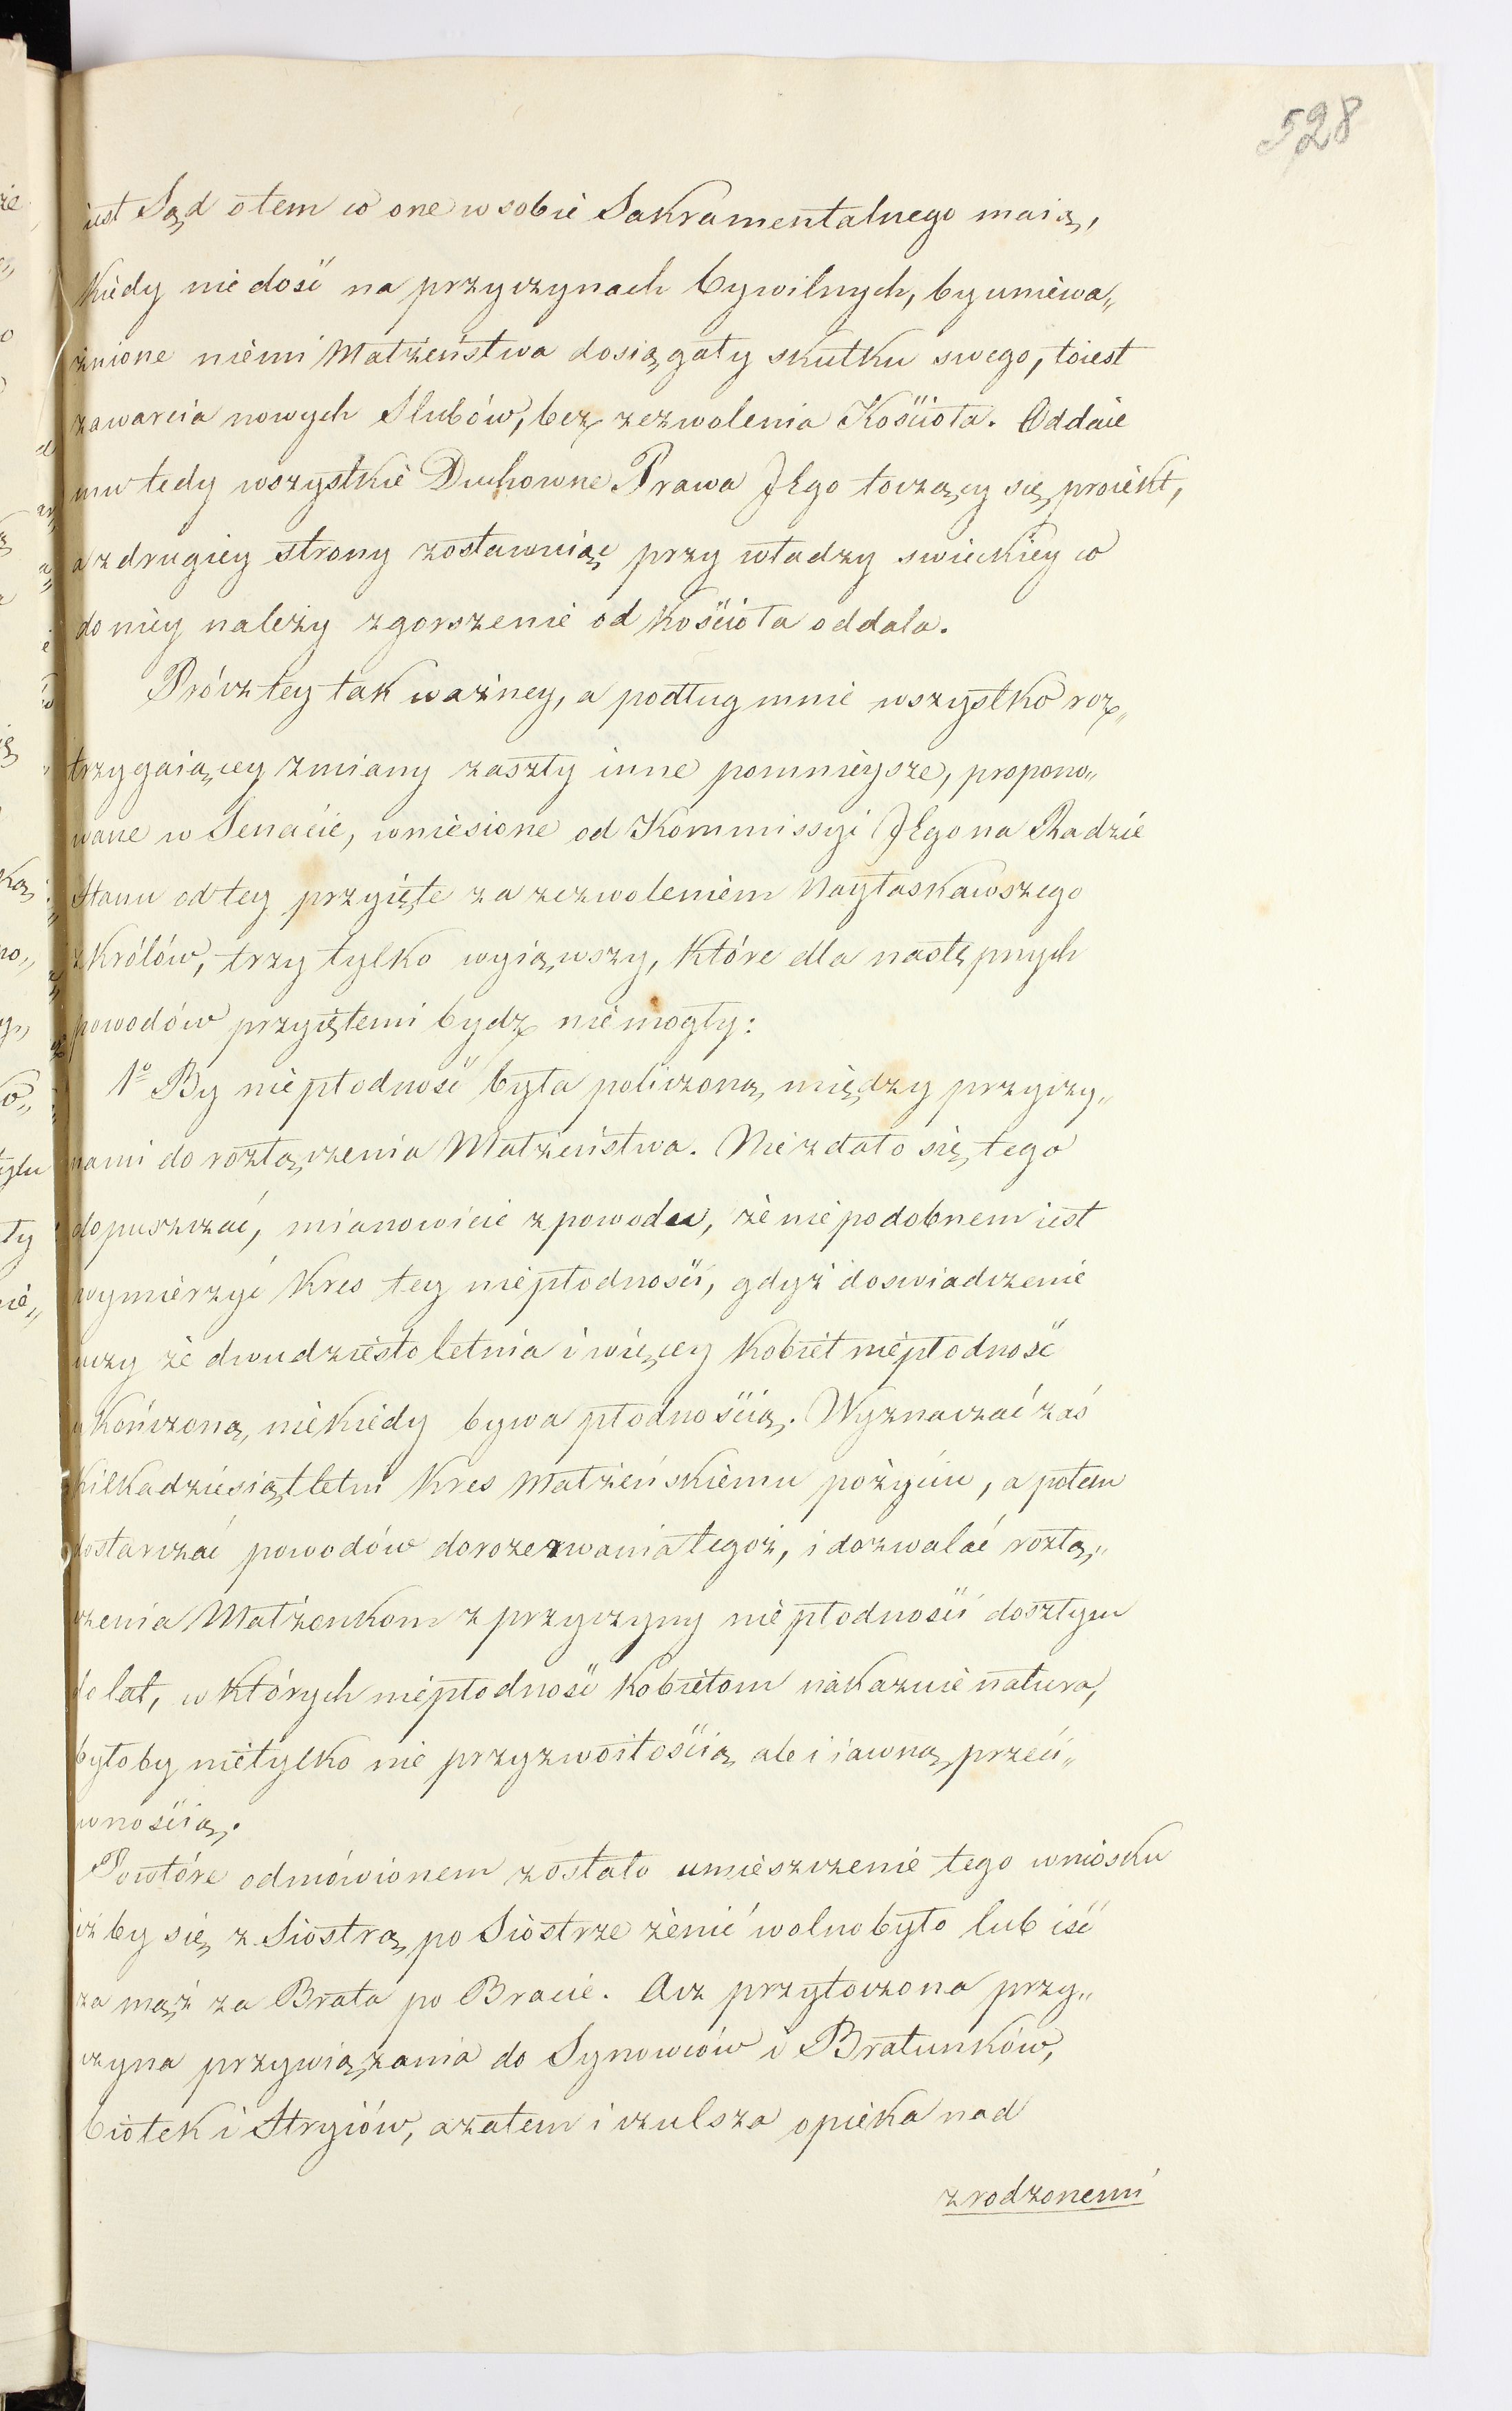 528
iest Sąd o tem co one w sobie Sakramentalnego maią,
kiedy nie dość na przyczynach Cywilnych, by uniewa„
żnione niemi Małżeństwa dosięgały skutku swego, toiest
zawarcia nowych Slubów, bez zezwolenia Kościoła. Oddaie
mu tedy wszystkie Duchowne Prawa JEgo toczący się proiekt,
a z drugiey strony zostawuiąc przy władzy swieckiey co
do niey należy zgorszenie od Kościoła oddala.
Prócz tey tak ważney, a podług mnie wszystko roz„
trzygaiącey zmiany zaszły inne pomnieysze, propono„
wane w Senacie, wniesione od Kommissyi JEgo na Radzie
Stanu od tey przyięte za zezwoleniem Nayłaskawszego
z Królów, trzy tylko wyiąwszy, które dla następnych
powodów przyiętemi bydz nie mogły:
1º By niepłodność była policzoną między przyczy„
nami do rozłączenia Małżeństwa. Nie zdało się tego
dopuszczać, mianowicie z powodu, że niepodobnem iest
wymierzyć kres tey niepłodności, gdyż doswiadczenie
uczy że dwudziesto letnia i więcey kobiet niepłodność
ukończoną niekiedy bywa płodnością. Wyznaczać zaś
kilkadziesiąt letni kres Małżeńskiemu pożyciu, a potem
dostarczać powodów do rozerwania tegoż, i dozwalać rozłą„
czenia Małżonkom z przyczyny niepłodności doszłym
do lat, w których niepłodność kobietom nakazuie natura,
byłoby nietylko nie przyzwoitością ale i iawną przeci„
wnością.
Powtóre odmówionem zostało umieszczenie tego wniosku
iżby się z Siostrą po Siostrze żenić wolno było lub iść
za mąż za Brata po Bracie. Acz przytoczona przy„
czyna przywiązania do Synowców i Bratunków,
Ciotek i Stryiów, azatem i czulsza opieka nad
zrodzonemi